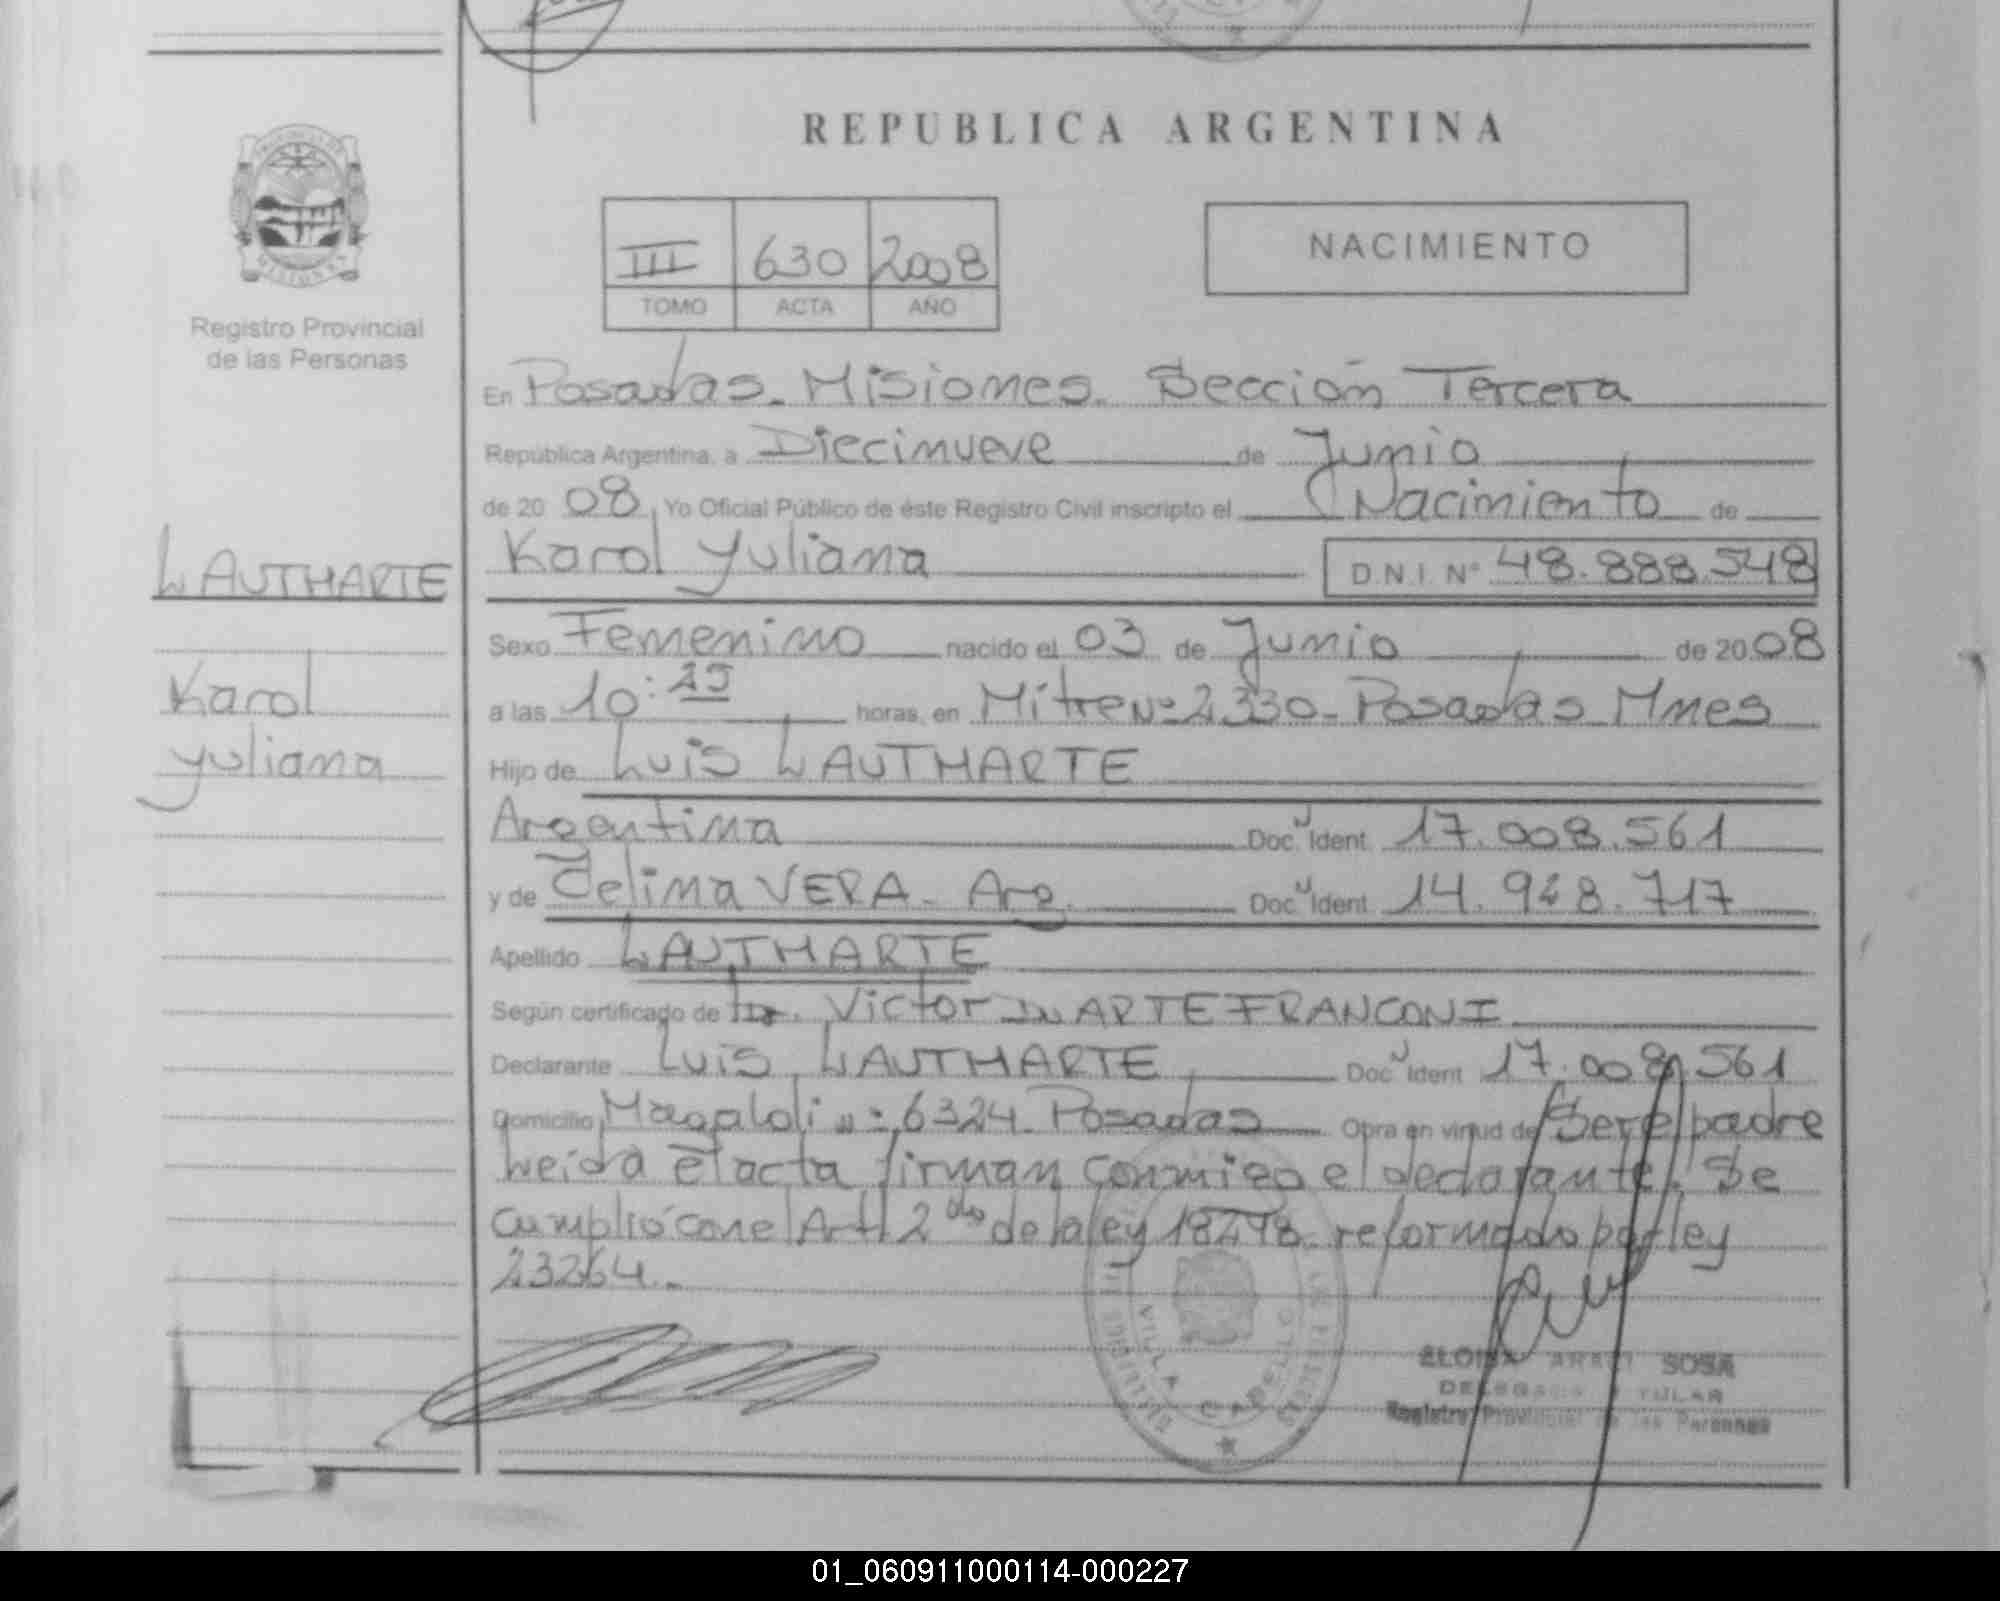 REPUBLICA ARGENTINA
PROVINCIA DE
MISIONES
Registro Provincial
de las Personas
III 630 2008
TOMO ACTA AÑO
NACIMIENTO
En Posadas - Misiones. Sección Tercera
República Argentina, a Diecinueve de Junio
de 20 08, Yo Oficial Público de éste Registro Civil inscripto el Nacimiento de
LAUTHARTE
Karol Yuliana D.N.I. Nº 48.888.548
Sexo Femenino nacido el 03 de Junio de 20 08
Karol
Yuliana
a las 10:25 horas, en Mitre Nº 2330 - Posadas Mnes
Hijo de Luis LAUTHARTE
Argentina Doc. Ident. 17.008.561
y de Zelima VERA - Arg. Doc. Ident. 14.928.717
Apellido LAUTHARTE
Según certificado de Dr. Victor DUARTE FRANCONI
Declarante Luis LAUTHARTE Doc. Ident. 17.008.561
Domicilio Magaldi nº 6324 Posadas Opra en virtud de Ser el padre
Leída el acta firman conmigo el declarante. Se
cumplió con el Art 2do de la ley 18248 reformado por ley
23264.-
VILLA CABELLO
SOSA
Registro Provincial de las Personas
01_060911000114-000227